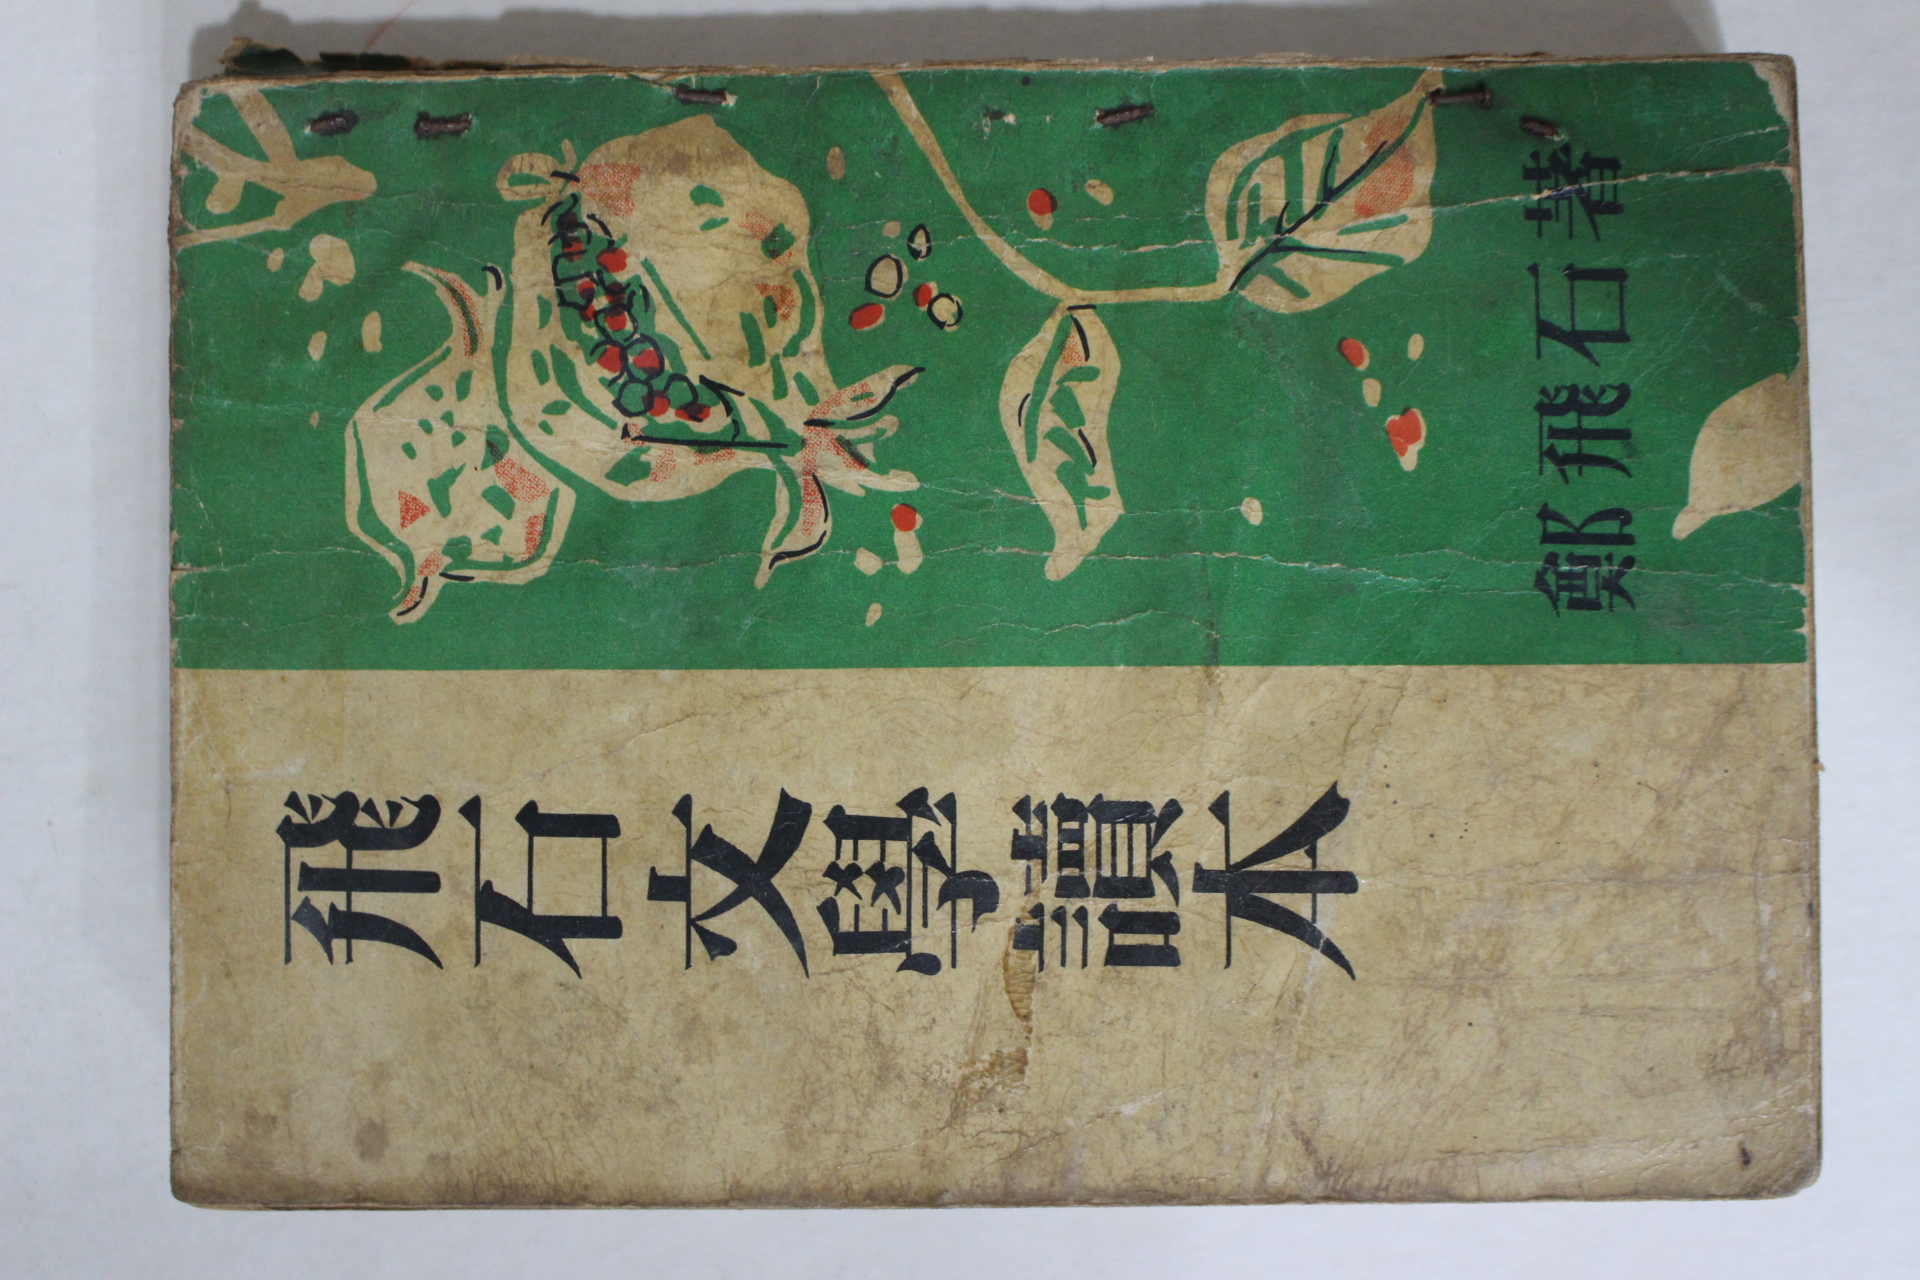 飛石文學讀本
鄭飛石著